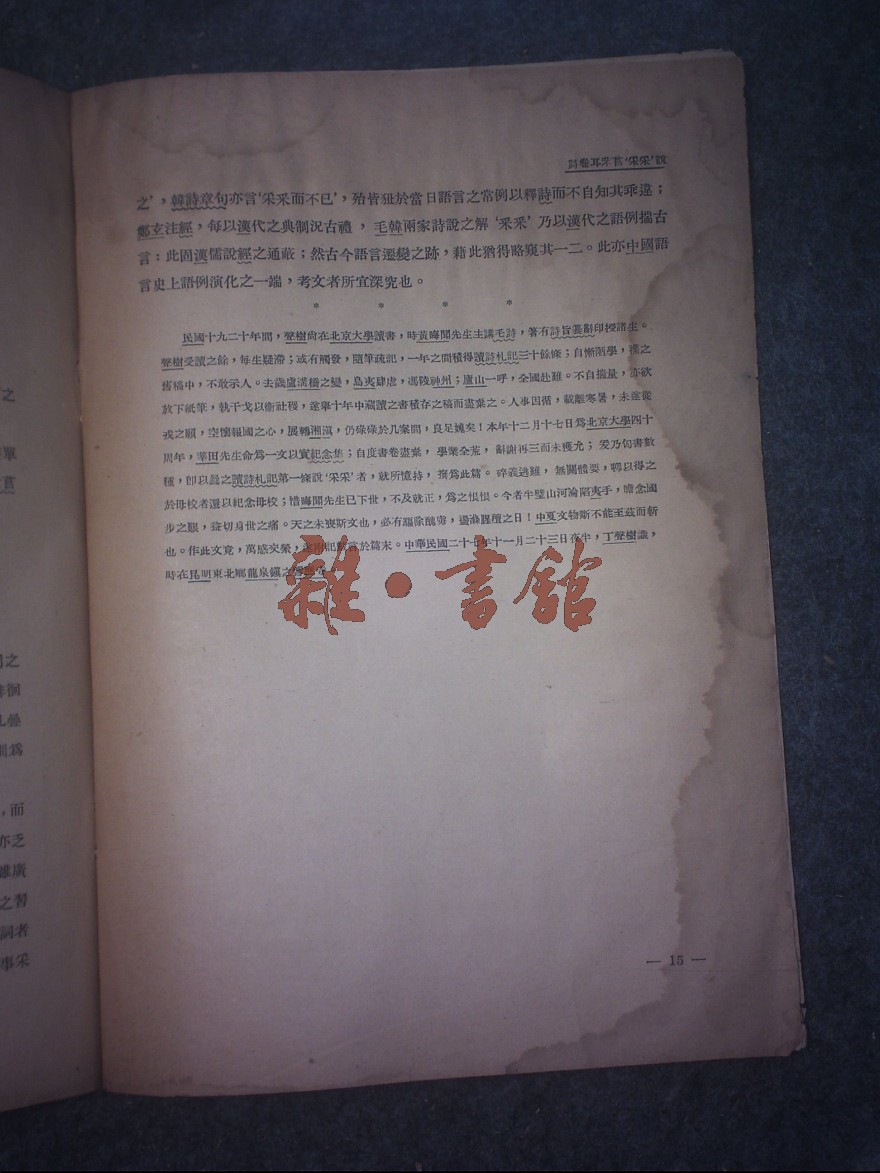 詩卷耳芣苢‘采采’說
之’，韓詩章句亦言‘采采而不已’，殆皆狃於當日語言之常例以釋詩而不自知其乖違；
鄭玄注經，每以漢代之典制況古禮，毛韓兩家詩說之解‘采采’乃以漢代之語例揣古
言：此固漢儒說經之通蔽；然古今語言遷變之跡，藉此猶得略窺其一二。此亦中國語
言史上語例演化之一端，考文者所宜深究也。
* * * *
民國十九二十年間，聲樹尙在北京大學讀書，時黃晦聞先生主講毛詩，箸有詩旨纂辭印授諸生。
聲樹受讀之餘，每生疑滯；或有觸發，隨筆疏記，一年之間積得讀詩札記三十餘條；自慚陋學，襍之
舊稿中，不敢示人。去歲盧溝橋之變，島夷肆虐，馮陵神州；廬山一呼，全國赴難。不自揣量，亦欲
放下紙筆，執干戈以衞社稷，遂舉十年中藏讀之書積存之稿而盡棄之。人事因循，載離寒暑，未遂從
戎之願，空懷報國之心，展轉湘滇，仍碌碌於几案間，良足媿矣！本年十二月十七日爲北京大學四十
周年，莘田先生命爲一文以實紀念集；自度書卷盡棄，學業全荒，辭謝再三而未獲允；爰乃匄書數
種，卽以曩之讀詩札記第一條說‘采采’者，就所憶持，寫爲此篇。碎義逃難，無關體要，聊以得之
於母校者還以紀念母校；惜晦聞先生已下世，不及就正，爲之悵恨。今者半壁山河淪陷夷手，瞻念國
步之艱，益切身世之痛。天之未喪斯文也，必有驅除醜虜，盪滌腥羶之日！中夏文物斯不能至茲而斬
也。作此文竟，萬感交縈，遂附記於篇末。中華民國二十七年十一月二十三日夜半，丁聲樹識，
時在昆明東北鄉龍泉鎮之
雜·書館
— 15 —
之
單
苢
之
徘徊
爲
，而
亦乏
雖廣
之習
詞者
事采